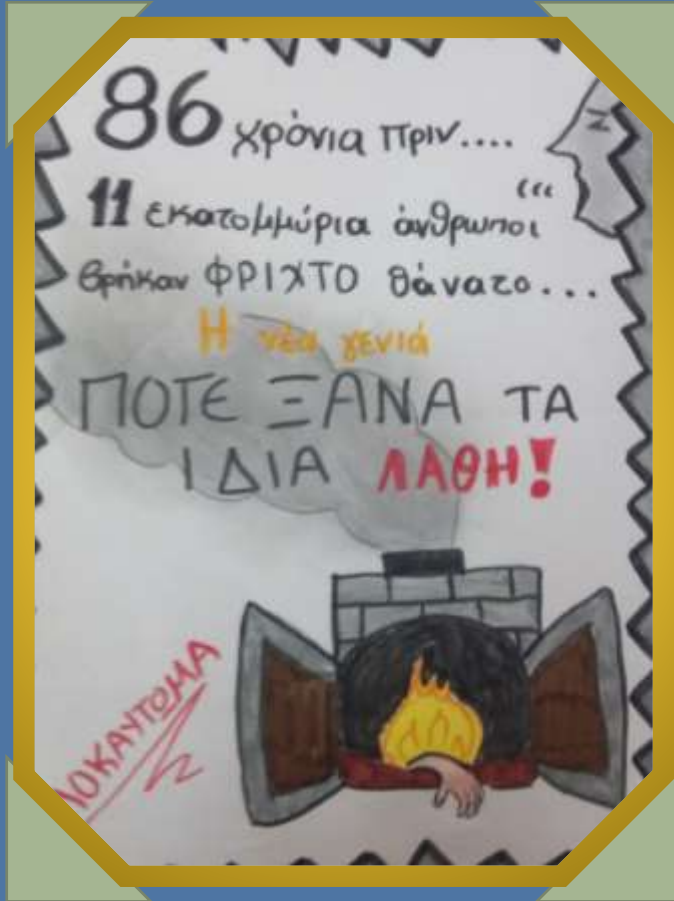 86 χρόνια πριν....
11 εκατομμύρια άνθρωποι
βρήκαν ΦΡΙΧΤΟ θάνατο...
Η νέα γενιά
ΠΟΤΕ ΞΑΝΑ ΤΑ
ΙΔΙΑ ΛΑΘΗ!
ΛΟΚΑΥΤΩΜΑ